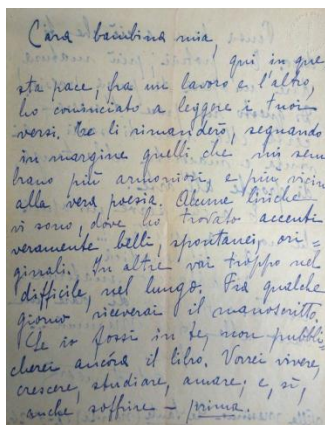 Cara bambina mia,
qui, in que
sta pace, fra un lavoro e l'altro,
ho cominciato a leggere i tuoi
versi. Te li rimanderò, segnando
in margine quelli che mi sem
brano più armoniosi, e più vicini
alla vera poesia. Alcune liriche
vi sono, dove ho trovato accenti
veramente belli, spontanei, ori=
ginali. In altre vai troppo nel
difficile, nel lungo. Fra qualche
giorno riceverai il manoscritto.
Se io fossi in te, non pubbli
cherei ancóra il libro. Vorrei vivere,
crescere, studiare, amare; e, sì,
anche soffrire – prima.